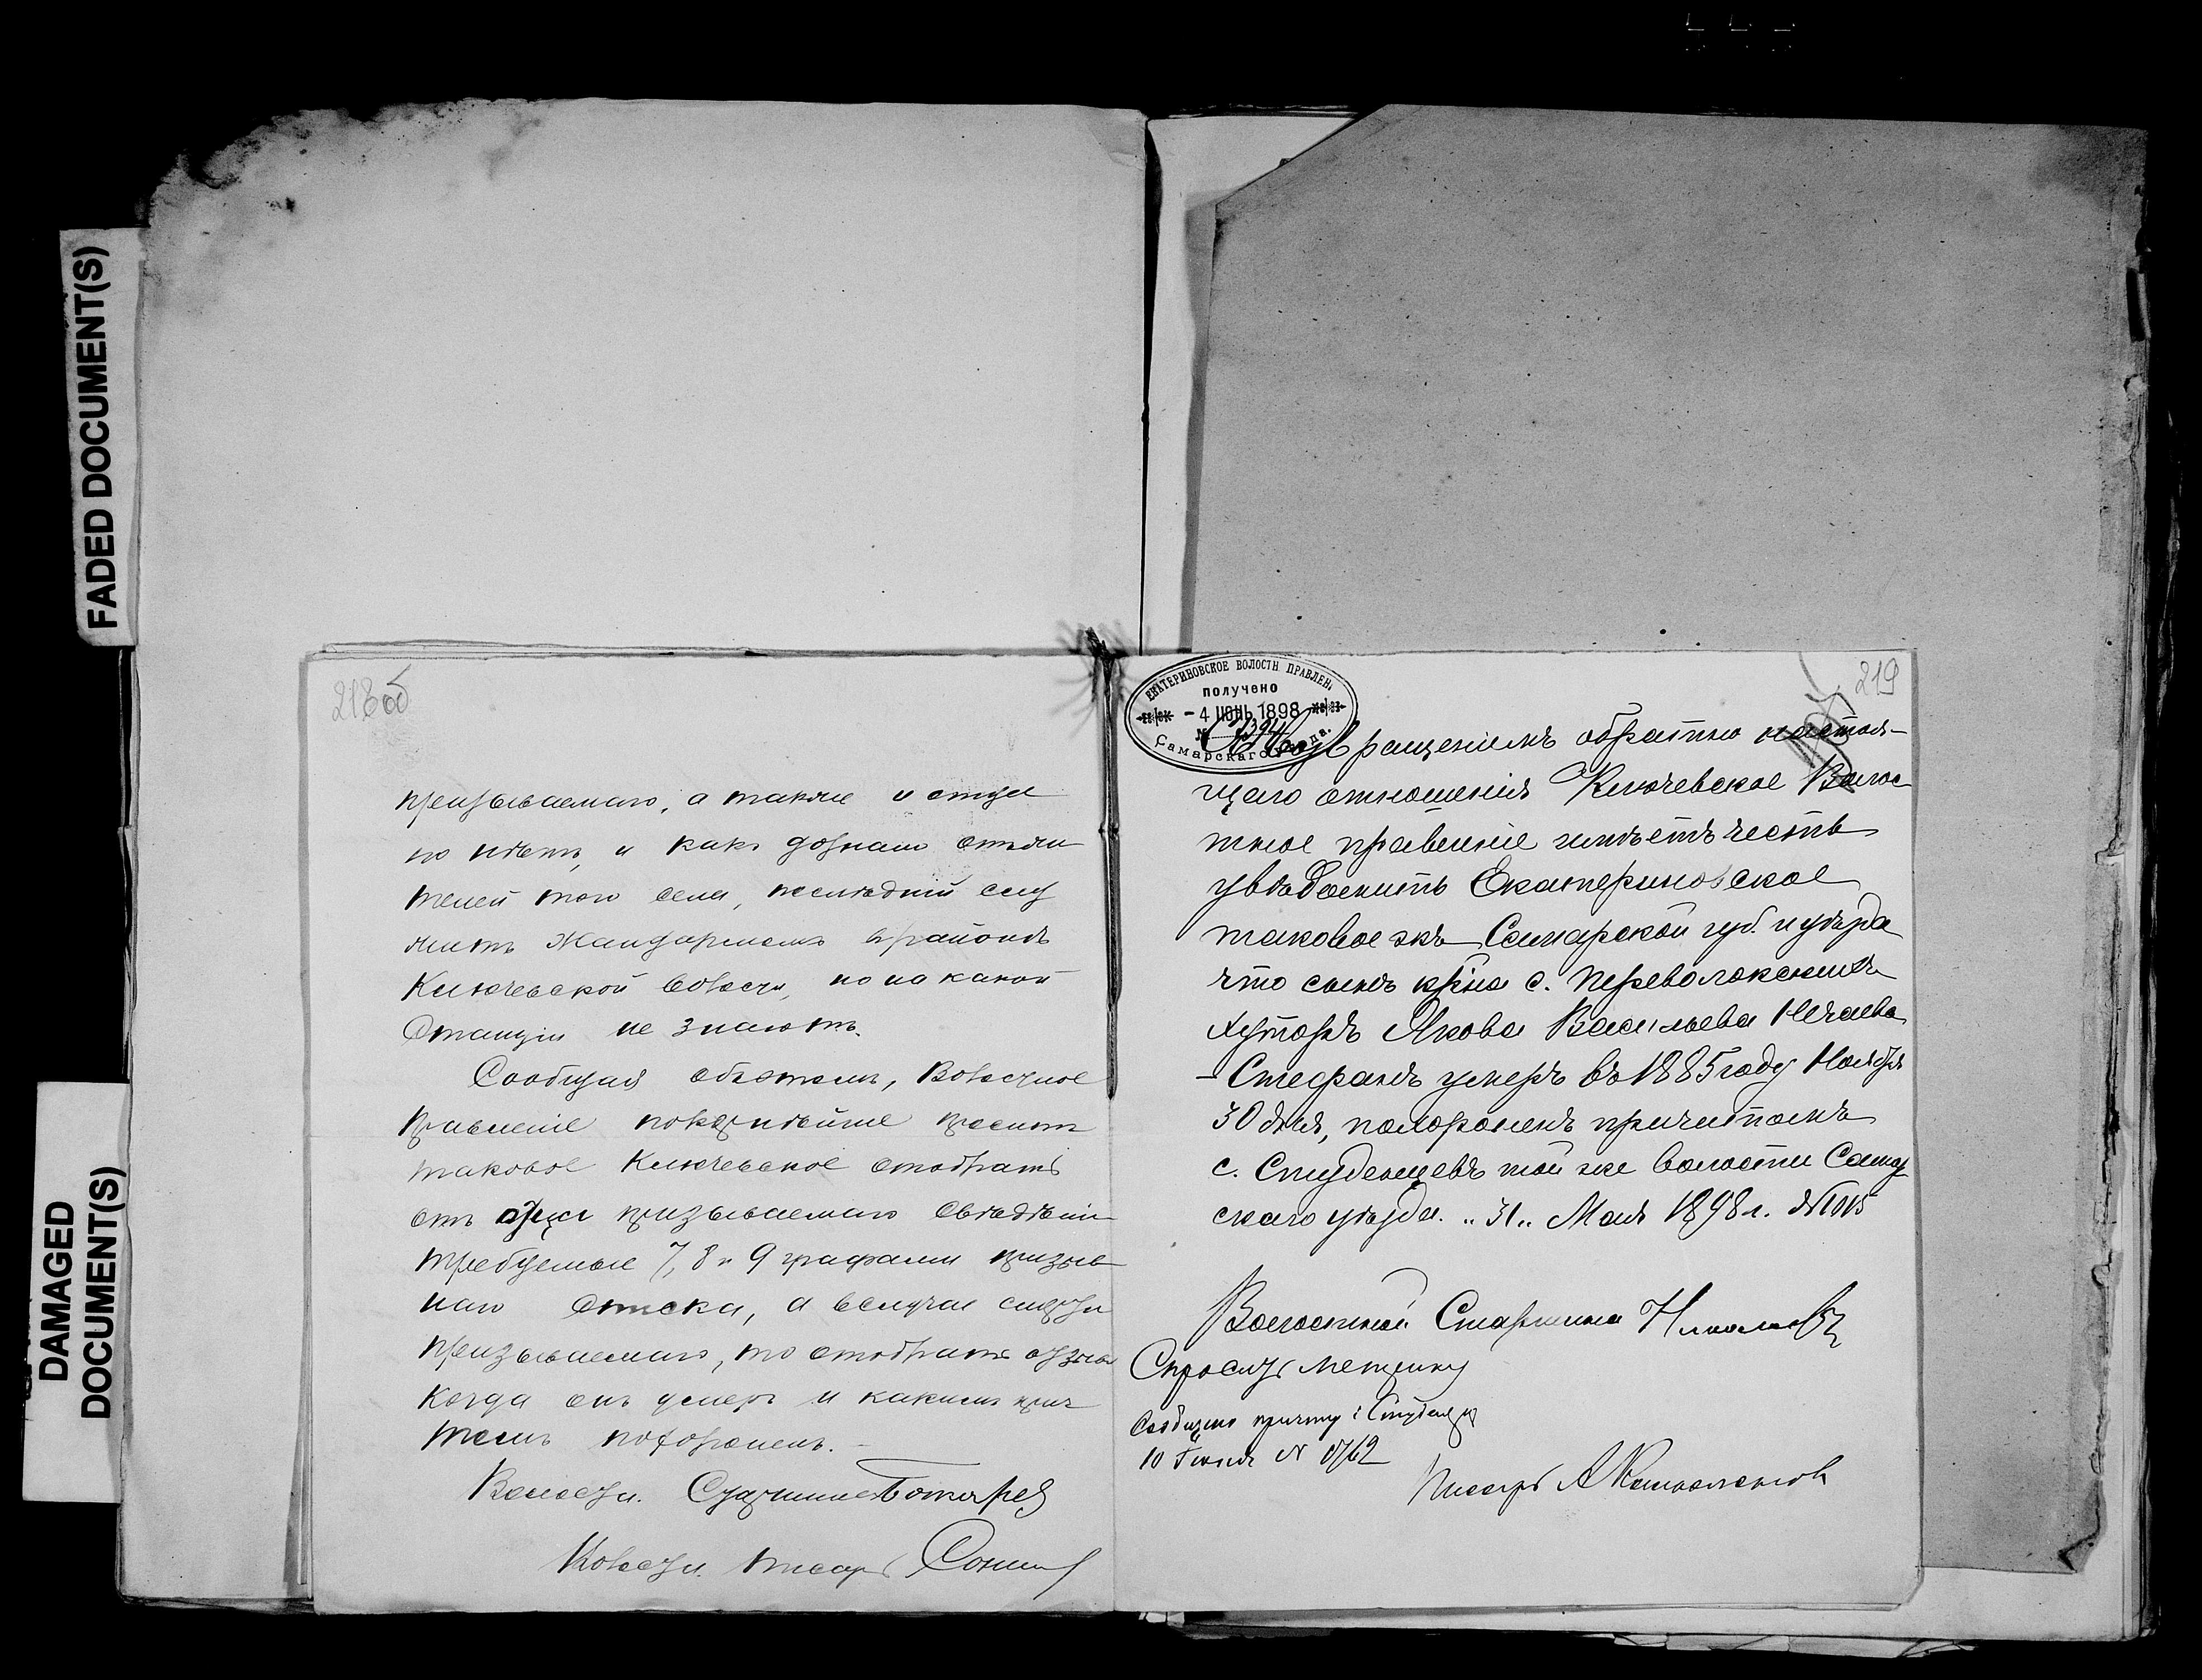 FADED DOCUMENT(S)
DAMAGED
DOCUMENT(S)
218 об
призываемаго, а также и отца
но нѣтъ, и какъ дознано
телей того села, последний слу
житъ Жандармомъ в районѣ
Ключевской волости, но на какой
Станціи не знаютъ.
Сообщая объ этомъ, Волостное
правленіе покорнѣйше проситъ
таковое Ключевское отобрать
отъ отца призываемаго свѣдѣнія
требуемые 7, 8 и 9 графами призыв
наго списка, а в случаѣ смерти
призываемаго, то отобрать отзывъ
когда онъ умеръ и какимъ прич
томъ похороненъ.
Волостн. Старшина
Волостн. писарь
219
ЕКАТЕРИНОВСКОЕ ВОЛОСТН ПРАВЛЕН.
ПОЛУЧЕНО
- 4 ИЮНЬ 1898
Самарскаго уѣзда.
Съ возвращеніемъ обратно настоя-
щаго отношенія Ключевское Волос
тное правленіе имѣетъ честь
увѣдомить Екатериновское
таковое жъ Самарской губ. и уѣзда
что сынъ кр-на с. Переволокскихъ
хуторъ Якова Васильева Нечаева
- Стефанъ умеръ въ 1885 году Ноября
30 дня, похороненъ причтомъ
с. Студенцевъ той же волости Самар
скаго уѣзда. „31„ Мая 1898 г. № 1015
Волостной Старшина
Сообщено причту с. Студенцы
10 Іюня № 1762
Писарь А